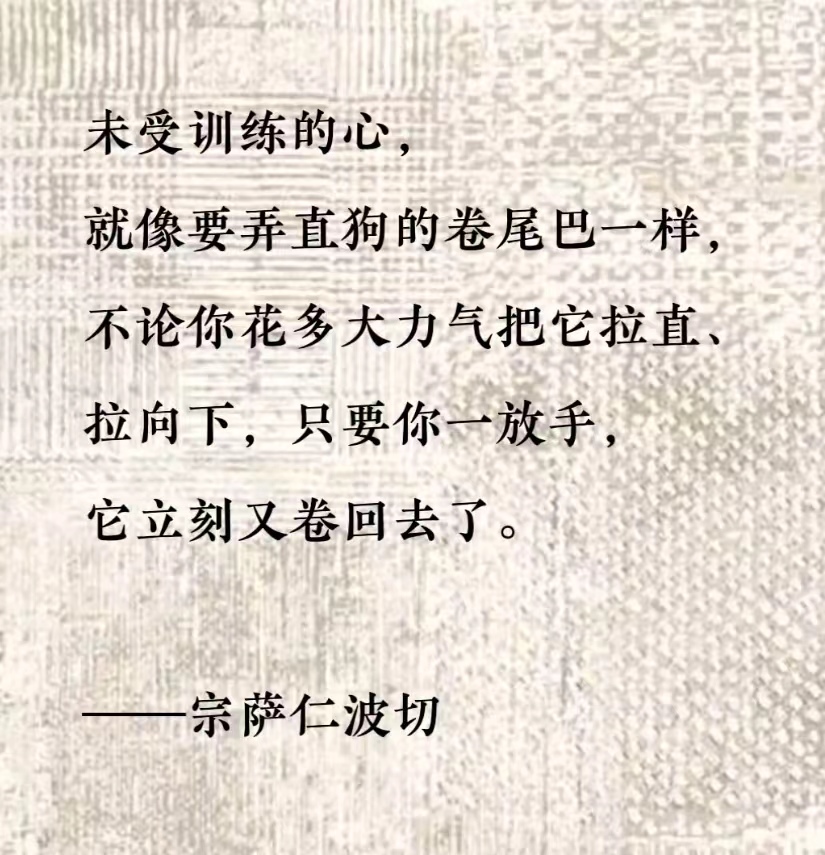 未受训练的心，
就像要弄直狗的卷尾巴一样，
不论你花多大力气把它拉直、
拉向下，只要你一放手，
它立刻又卷回去了。
——宗萨仁波切